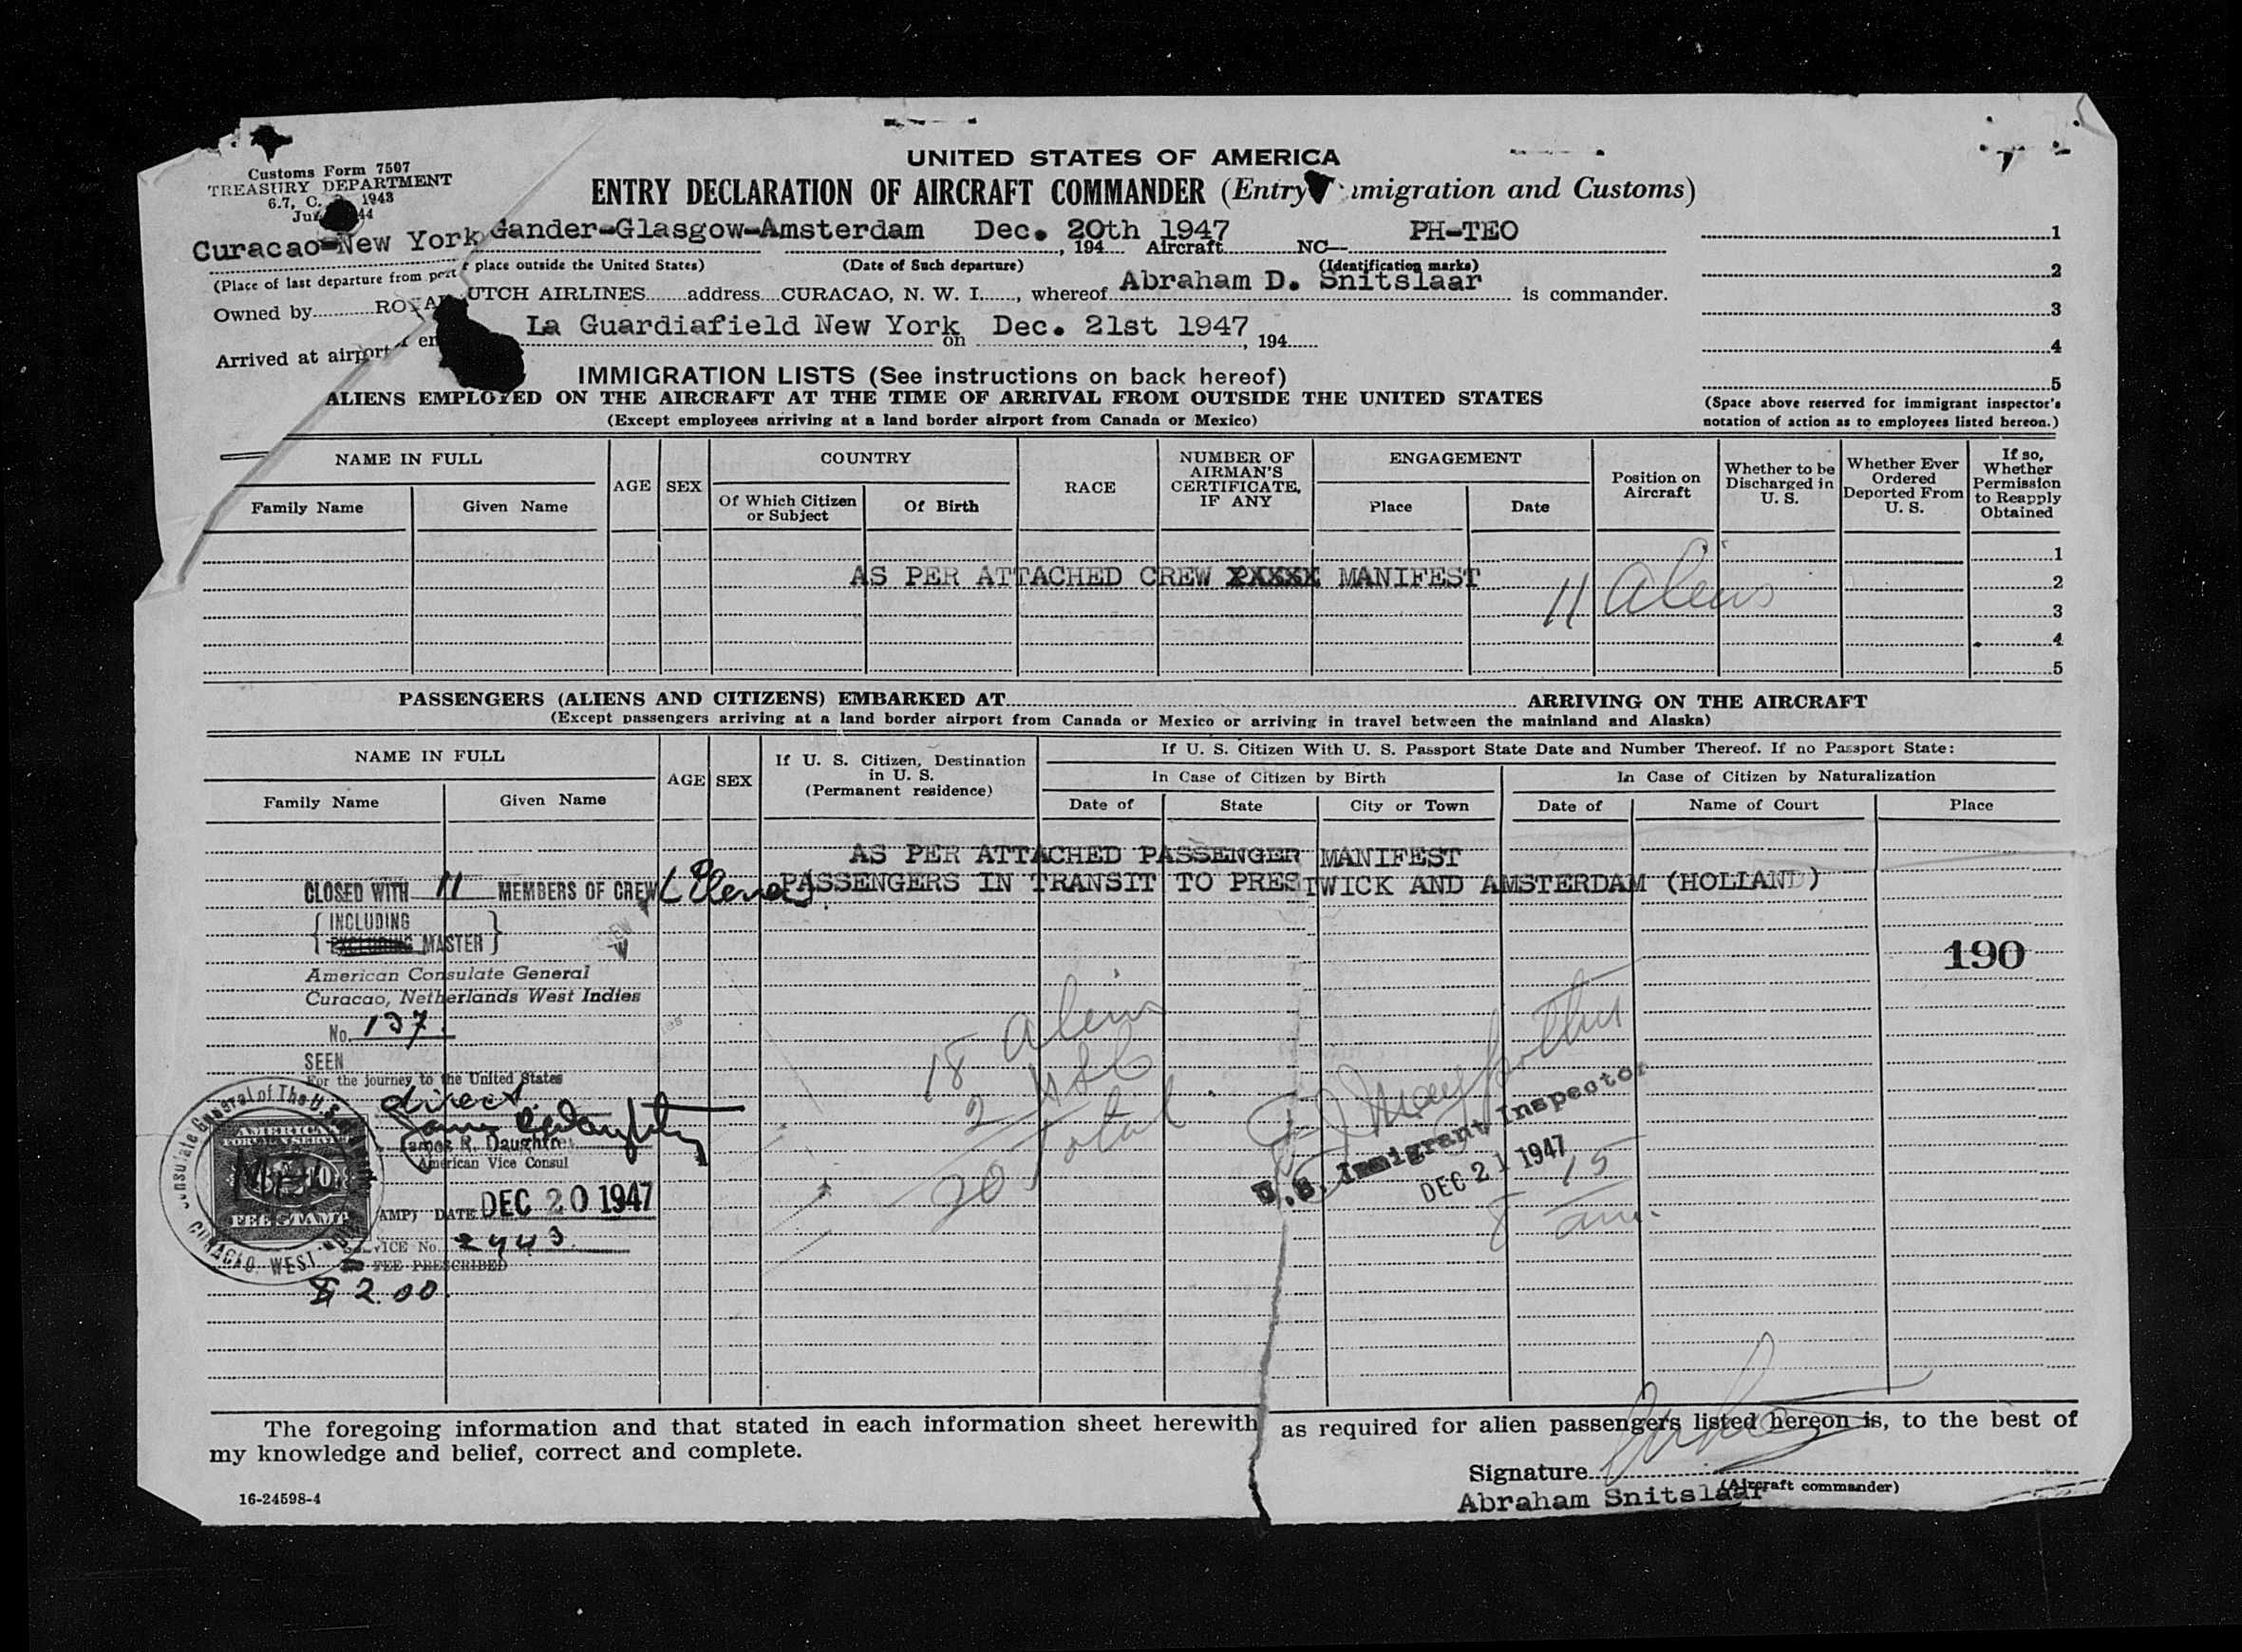 UNITED STATES OF AMERICA
ENTRY DECLARATION OF AIRCRAFT COMMANDER (Entry migration and Customs)
Customs Form 7507
TREASURY DEPARTMENT
6.7, C. 1943
44
Curacao-New York Gander-Glasgow-Amsterdam Dec. 20th 1947, 194 Aircraft NC— PH-TEO
(Place of last departure from port r place outside the United States) (Date of Such departure) (Identification marks)
Owned by ROYAL UTCH AIRLINES address CURACAO, N. W. I., whereof Abraham D. Snitslaar is commander.
Arrived at airport en La Guardiafield New York on Dec. 21st 1947, 194
1
2
3
4
5
(Space above reserved for immigrant inspector's
notation of action as to employees listed hereon.)
IMMIGRATION LISTS (See instructions on back hereof)
ALIENS EMPLOYED ON THE AIRCRAFT AT THE TIME OF ARRIVAL FROM OUTSIDE THE UNITED STATES
(Except employees arriving at a land border airport from Canada or Mexico)
NAME IN FULL
Family Name Given Name
AGE SEX
COUNTRY
Of Which Citizen or Subject Of Birth
RACE
NUMBER OF AIRMAN'S CERTIFICATE, IF ANY
ENGAGEMENT
Place Date
Position on Aircraft
Whether to be Discharged in U. S.
Whether Ever Ordered Deported From U. S.
If so, Whether Permission to Reapply Obtained
1
AS PER ATTACHED CREW XXXXX MANIFEST 2
11 Aliens
3
4
5
PASSENGERS (ALIENS AND CITIZENS) EMBARKED AT ARRIVING ON THE AIRCRAFT
(Except passengers arriving at a land border airport from Canada or Mexico or arriving in travel between the mainland and Alaska)
NAME IN FULL
Family Name Given Name
AGE SEX
If U. S. Citizen, Destination in U. S. (Permanent residence)
If U. S. Citizen With U. S. Passport State Date and Number Thereof. If no Passport State:
In Case of Citizen by Birth In Case of Citizen by Naturalization
Date of State City or Town Date of Name of Court Place
AS PER ATTACHED PASSENGER MANIFEST
PASSENGERS IN TRANSIT TO PRESTWICK AND AMSTERDAM (HOLLAND)
CLOSED WITH 11 MEMBERS OF CREW
INCLUDING
EXCLUDING MASTER
American Consulate General
Curacao, Netherlands West Indies
No. 137.
SEEN
For the journey to the United States
direct
James R. Daughtrey
American Vice Consul
DATE DEC 20 1947
SERVICE No. 2443
FEE PRESCRIBED
$ 2.00
AMERICAN
FOREIGN SERVICE
FEE STAMP
190
18 Aliens
2 USC
20 Total
U.S. Immigrant Inspector
DEC 21 1947
8 15 am.
The foregoing information and that stated in each information sheet herewith as required for alien passengers listed hereon is, to the best of
my knowledge and belief, correct and complete.
Signature
(Aircraft commander)
Abraham Snitslaar
16-24598-4